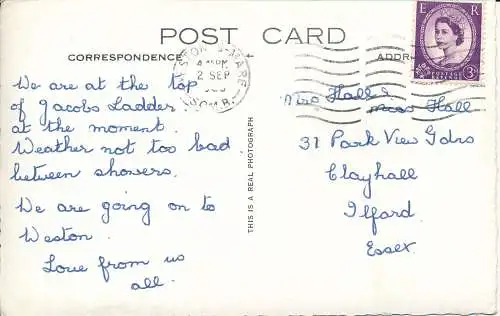 POST CARD
CORRESPONDENCE
ADDR
2 SEP
E R
POSTAGE
3D
We are at the top
of Jacobs Ladder
at the moment.
Weather not too bad
between showers.
We are going on to
Weston.
Love from us
all.
THIS IS A REAL PHOTOGRAPH
Mrs Hall &
Miss Hall
31 Park View Gdns
Clayhall
Ilford.
Essex.